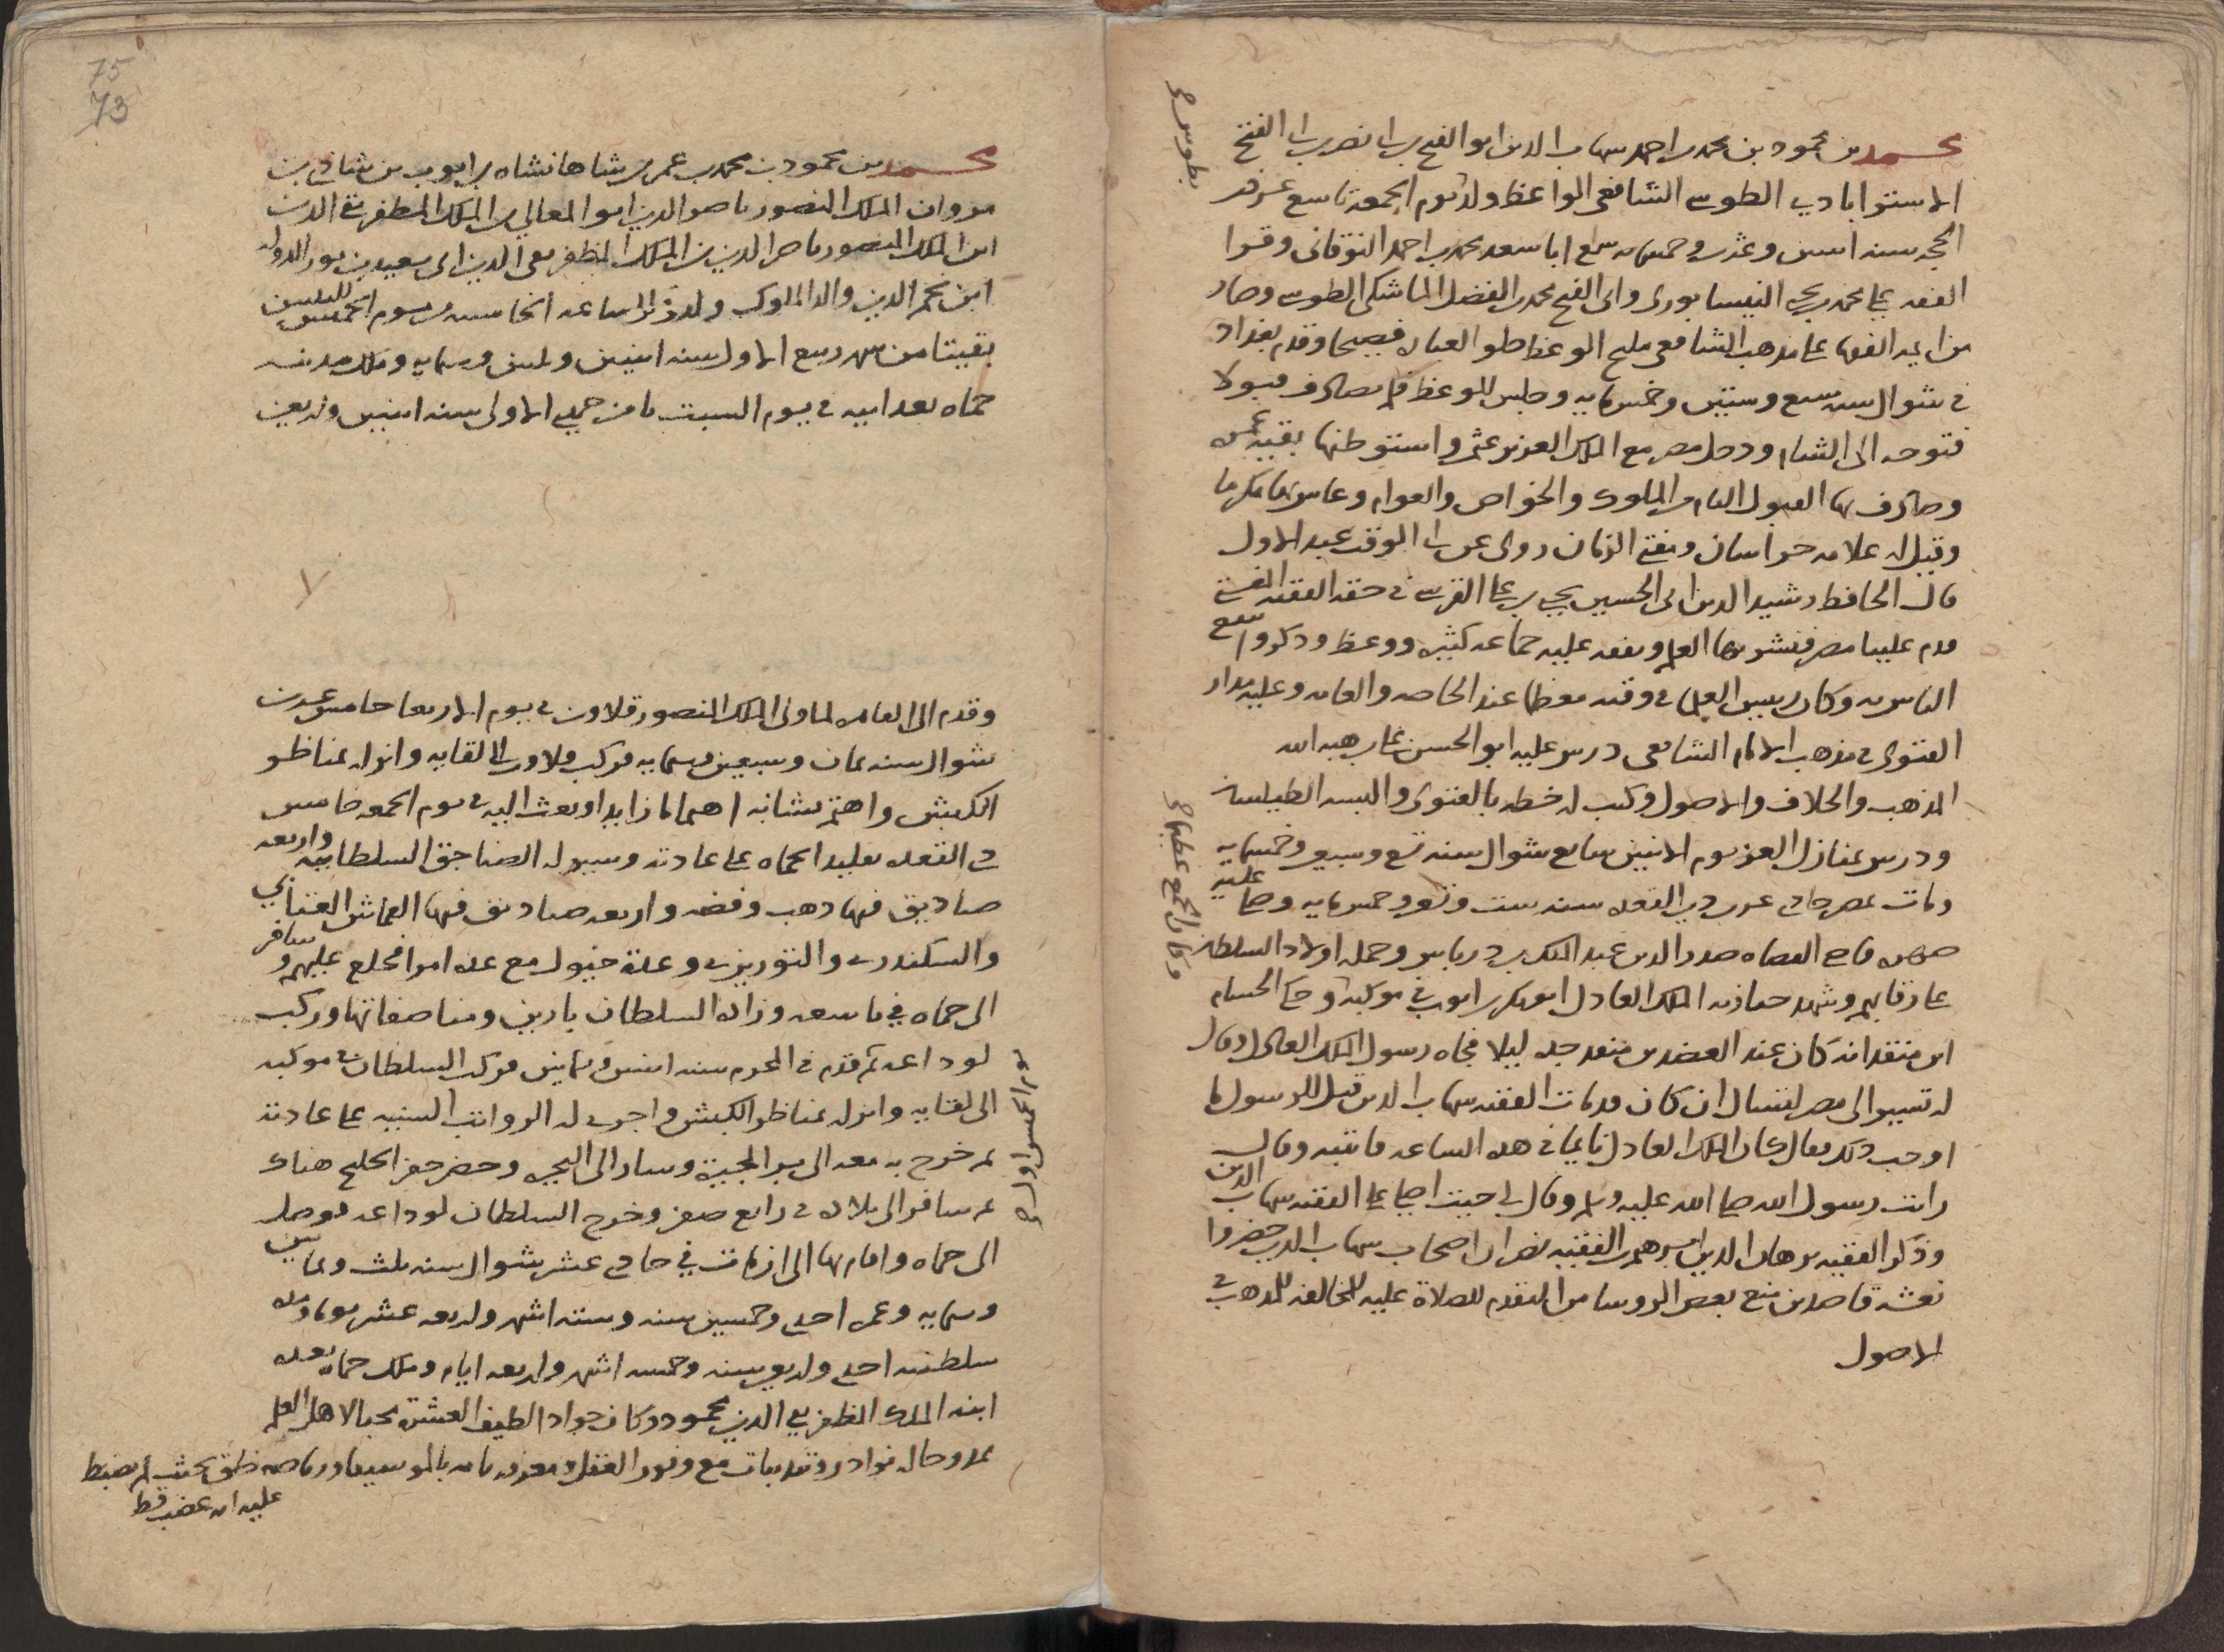 محمد بن محمود بن محمد بن احمد شهاب الدين ابو الفتح بن ابى نصر بن ابى الفتح
الاستراباذي الطوسي الشافعى الواعظ ولد يوم الجمعة تاسع عشر ذي
الحجه سنه اثنين وعشرين وخمسمايه سمع ابا سعد محمد بن احمد النوقانى وقرا
الفقه على محمد بن يحيى النيسابورى وابى الفتح محمد بن الفضل الماشكى الطوسى وصار
من ايمه الفقها على مذهب الشافعى مليح الوعظ حلو العباره فصيحا وقدم بغداد
فى شوال سنه سبع وستين وخمسمايه وجلس للوعظ فلم يصادف قبولا
فتوجه الى الشام ودخل مصر مع الملك العزيز عثمن واستوطنها بقيه عمره
وصادف بها القبول التام من الملوك والخواص والعوام وعاش بها مكرما
وقيل له علامه خراسان ومفتى الزمان روى عن ابى الوقت عبد الاول
قال الحافظ رشيد الدين ابى الحسين يحيى بن على القرشى فى حقه الفقيه المفتى
قدم علينا مصر فنشر بها العلم وتفقه عليه جماعه كثيره ووعظ وذكر وانتفع
الناس به وكان رييس العلما فى وقته معظما عند الخاصه والعامه وعليه مدار
الفتوى فى مذهب الامام الشافعى درس عليه ابو الحسن على بن هبه الله
المذهب والخلاف والاصول وكتب له خطه بالفتوى والبسه الطيلسان
ودرس بمنازل العز يوم الاثنين سابع شوال سنه تسع وسبعين وخمسمايه
ومات بمصر حادى عشرين ذي القعده سنه ست وتسعين وخمسمايه وصلى عليه
صهره قاضى القضاه صدر الدين عبد الملك بن درباس وحمله اولاد السلطان
على رقابهم وشهد جنازته الملك العادل ابو بكر بن ايوب فى موكبه وحكى الحسام
ابن منقذ انه كان عند العضد بن منقذ جده ليلا فجاه رسول الملك العادل وقال
له تسير الى مصر لتسال ان كان قد مات الفقيه شهاب الدين فقيل للرسول ما
اوجب ذلك فقال كان الملك العادل نايما فى هذه الساعه فانتبه وقال
رايت رسول الله صلى الله عليه وسلم وقال لى جيت اصلى على الفقيه شهاب الدين
وذكر الفقيه برهان الدين ابرهيم بن الفقيه نصر ان اصحاب شهاب الدين حضروا
نعشه قاصدين منع بعض الروسا من التقدم للصلاة عليه للمخالفه للمذهب فى
الاصول
بطوس صح
وكان الجمع عظيما صح
75
73
محمد بن محمود بن محمد بن عمر بن شاهانشاه بن ايوب بن شادي بن
مروان الملك المنصور ناصر الدين ابو المعالي بن الملك المظفر تقى الدين
ابن الملك المنصور ناصر الدين بن الملك المظفر تقى الدين ابى سعيد بن نور الدوله
ابن نجم الدين والد الملوك ولد فى الساعه الخامسه من يوم الخميس لليلتين
بقيتا من شهر ربيع الاول سنه اثنين وثلثين وستمايه وملك مدينه
حماه بعد ابيه فى يوم السبت ثامن جمادى الاولى سنه اثنين واربعين
وقدم الى القاهره لما ولى الملك المنصور قلاون فى يوم الاربعا خامس عشرين
شوال سنه ثمان وسبعين وستمايه فركب قلاون الى لقايه وانزله بمناظر
الكبش واهتم بشانه اهتماما زايدا وبعث اليه فى يوم الجمعه خامس
ذى القعده تقليدا بحماه على عادته وسير له الصناجق السلطانيه واربعه
صناديق فيها ذهب وفضه واربعه صناديق فيها القماش العتابي
والسكندرى والتوريزى وعدة خيول مع عده امرا فخلع عليهم وسافر
الى حماه فى تاسعه وزاده السلطان بارين ومناصفاتها وركب
لوداعه ثم قدم فى المحرم سنه اثنين وثمانين فركب السلطان فى موكبه
الى لقايه وانزله بمناظر الكبش واجرى له الرواتب السنيه على عادته
ثم خرج به معه الى بر الجيزة وسار الى البحيره وحضر حفر الخليج هناك
ثم سافر الى بلاده فى رابع صفر وخرج السلطان لوداعه فوصل
الى حماه واقام بها الى ان مات في حادى عشر شوال سنه ثلث وثمانين
وستمايه وعمره احدى وخمسين سنه وسته اشهر واربعه عشر يوما ومده
سلطنته احدى واربعين سنه وخمسه اشهر واربعه ايام وملك حماه بعده
ابنه الملك المظفر تقى الدين محمود وكان جوادا لطيف العشرة محبا لاهل العلم
وحال نوادر مع وفور العقل ومعرفه تامه بالموسيقا خلق بحيث لم يضبط
عليه انه غضب قط
يوم الخميس اوله